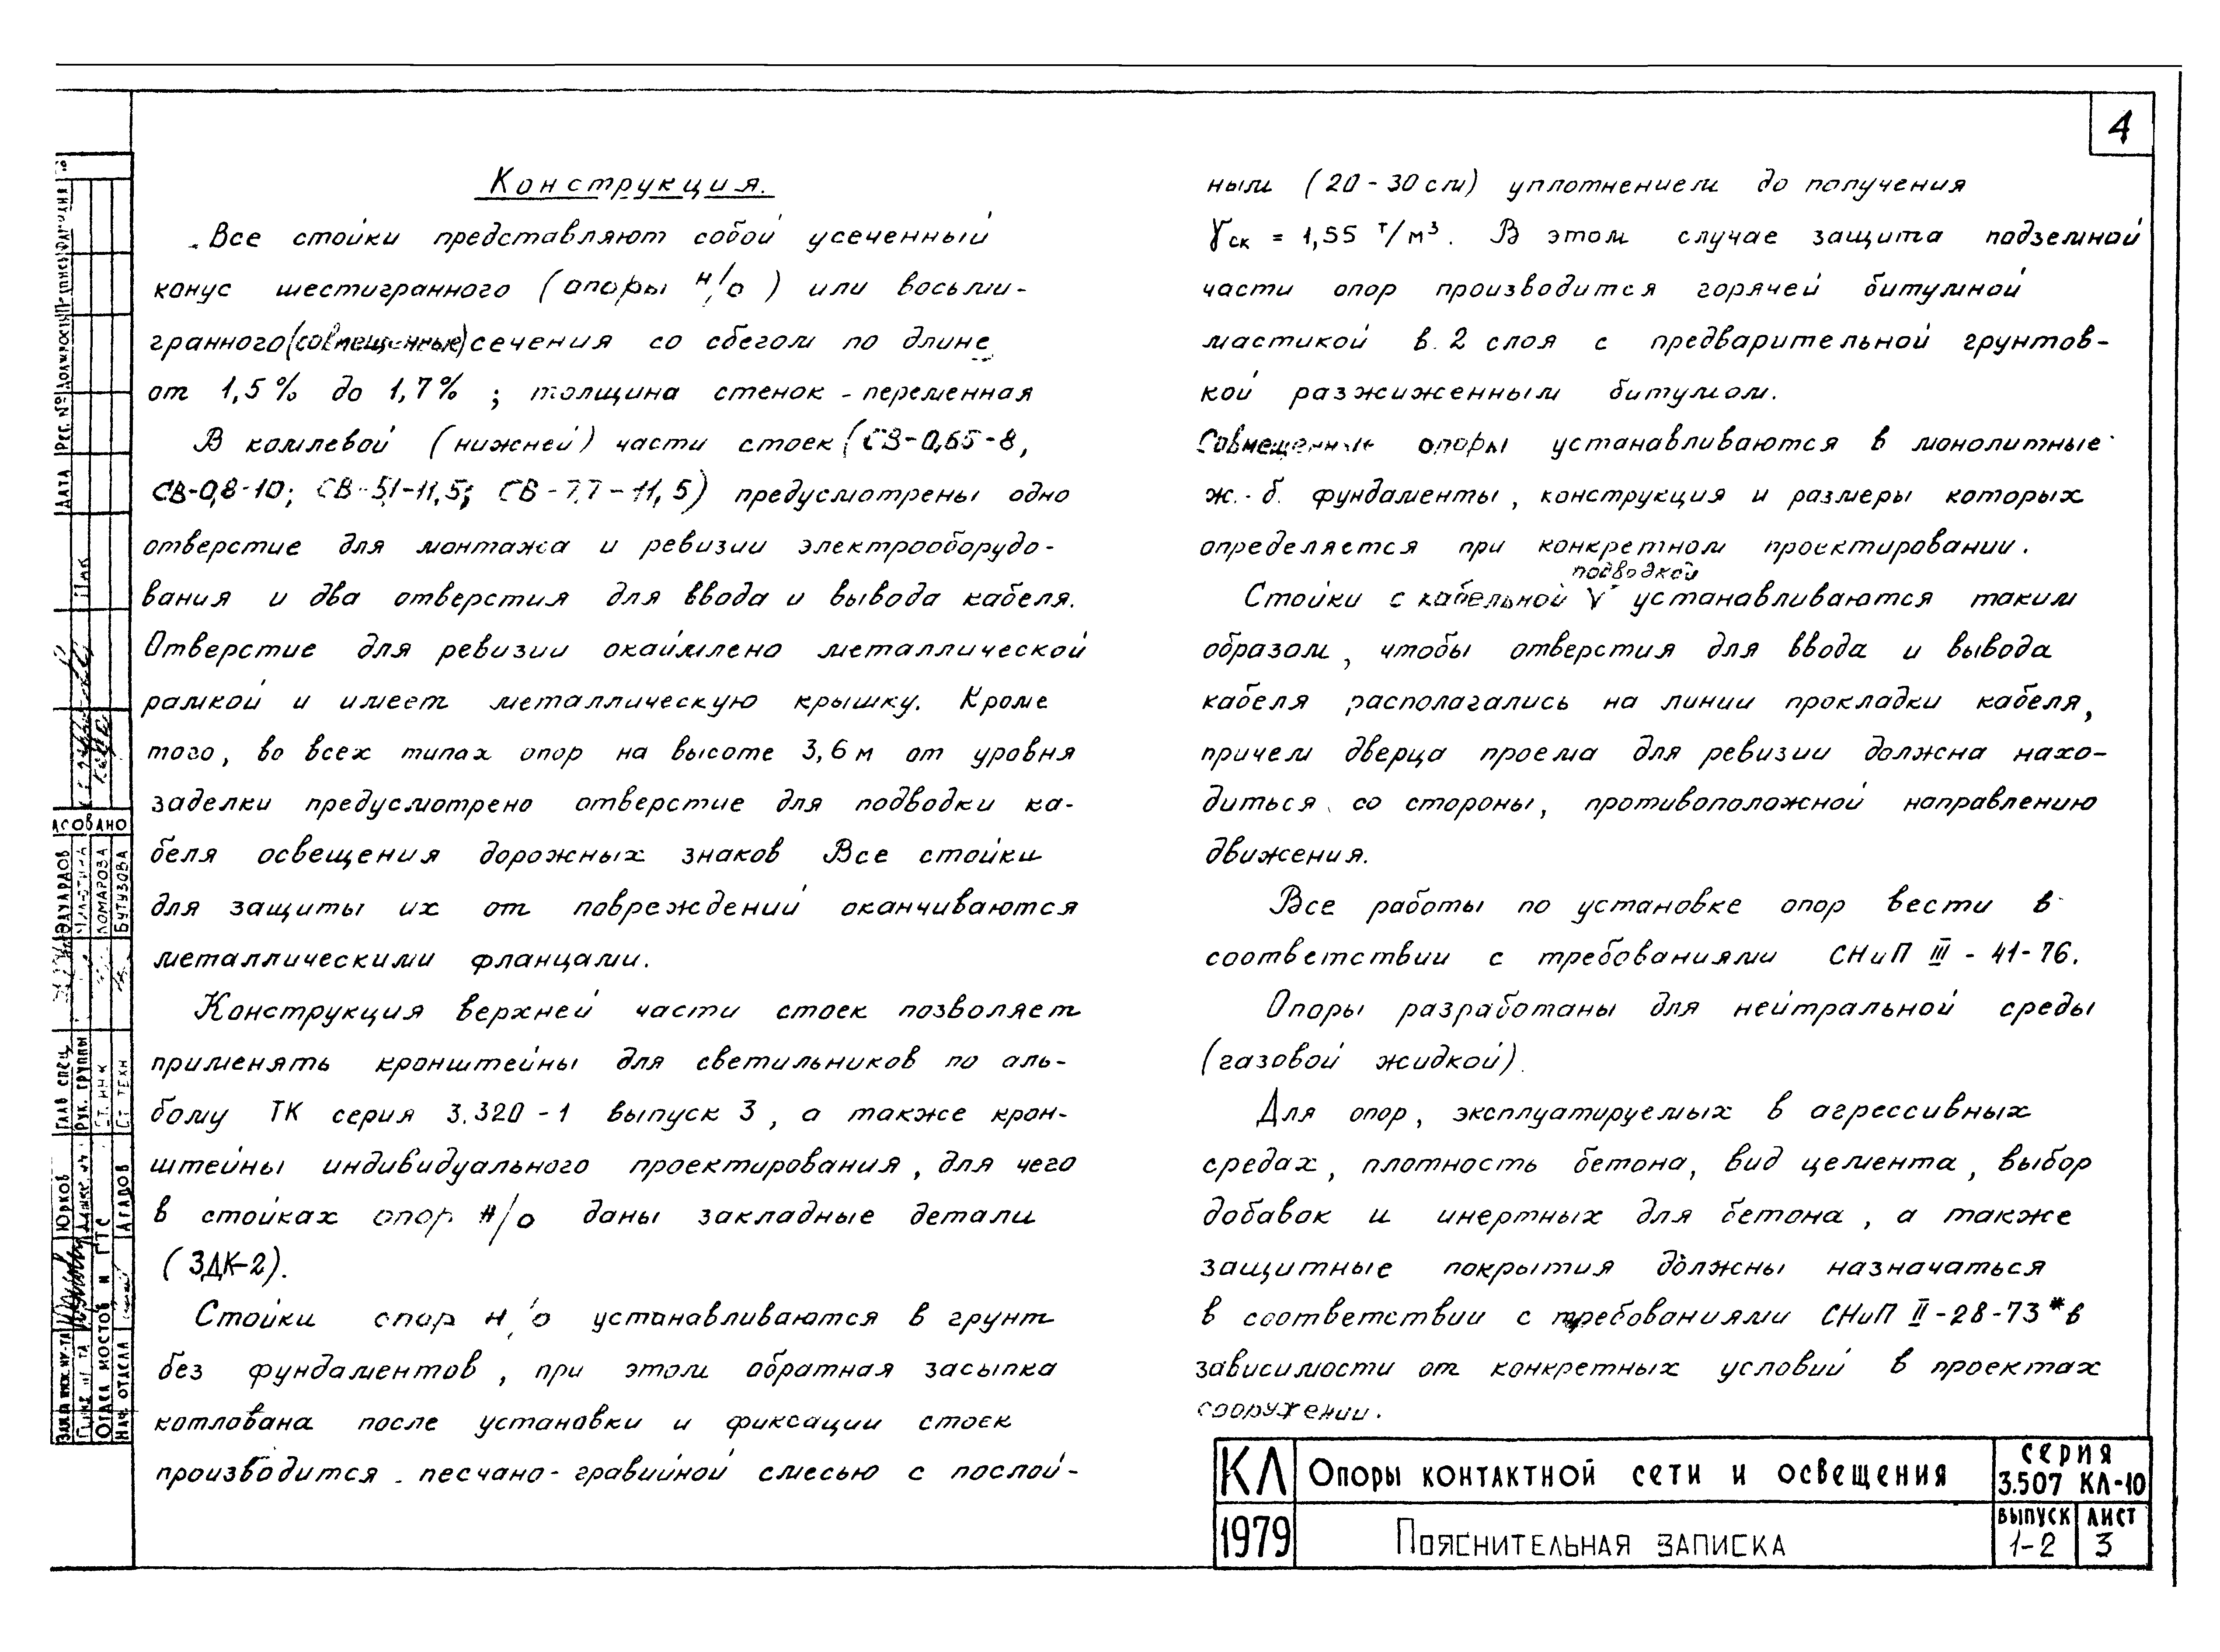 4
Конструкция.
Все стойки представляют собой усеченный
конус шестигранного (опоры н/о) или восьми-
гранного (совмещенные) сечения со сбегом по длине
от 1,5% до 1,7% ; толщина стенок - переменная
В комлевой (нижней) части стоек (СВ-0,65-8,
СВ-0,8-10; СВ-5,1-11,5; СВ-7,7-11,5) предусмотрены одно
отверстие для монтажа и ревизии электрооборудо-
вания и два отверстия для ввода и вывода кабеля.
Отверстие для ревизии окаймлено металлической
рамкой и имеет металлическую крышку. Кроме
того, во всех типах опор на высоте 3,6 м от уровня
заделки предусмотрено отверстие для подводки ка-
беля освещения дорожных знаков Все стойки
для защиты их от повреждений оканчиваются
металлическими фланцами.
Конструкция верхней части стоек позволяет
применять кронштейны для светильников по аль-
бому ТК серия 3.320-1 выпуск 3, а также крон-
штейны индивидуального проектирования, для чего
в стойках опор н/о даны закладные детали
(ЗДК-2).
Стойки опор н/о устанавливаются в грунт
без фундаментов, при этом обратная засыпка
котлована после установки и фиксации стоек
производится песчано-гравийной смесью с послой-
ным (20-30см) уплотнением до получения
γск = 1,55 т/м³. В этом случае защита подземной
части опор производится горячей битумной
мастикой в 2 слоя с предварительной грунтов-
кой разжиженным битумом.
Совмещенные опоры устанавливаются в монолитные
ж.-б. фундаменты, конструкция и размеры которых
определяется при конкретном проектировании.
подводкой
Стойки с кабельной V устанавливаются таким
образом, чтобы отверстия для ввода и вывода
кабеля располагались на линии прокладки кабеля,
причем дверца проема для ревизии должна нахо-
диться со стороны, противоположной направлению
движения.
Все работы по установке опор вести в
соответствии с требованиями СНиП III - 41-76.
Опоры разработаны для нейтральной среды
(газовой жидкой).
Для опор, эксплуатируемых в агрессивных
средах, плотность бетона, вид цемента, выбор
добавок и инертных для бетона, а также
защитные покрытия должны назначаться
в соответствии с требованиями СНиП II-28-73* в
зависимости от конкретных условий в проектах
сооружении.
КЛ
Опоры контактной сети и освещения
СЕРИЯ
3.507 КЛ-10
1979
Пояснительная записка
ВЫПУСК
1-2
ЛИСТ
3
ДАТА
Рег. №
ГЛАВ СПЕЦ
ЭДУАРДОВ
РУК. ГРУППЫ
БУТУЗОВА
СТ. ТЕХН
ЮРКОВ
ОТДЕЛ МОСТОВ И ГТС
НАЧ. ОТДЕЛА
АГАПОВ